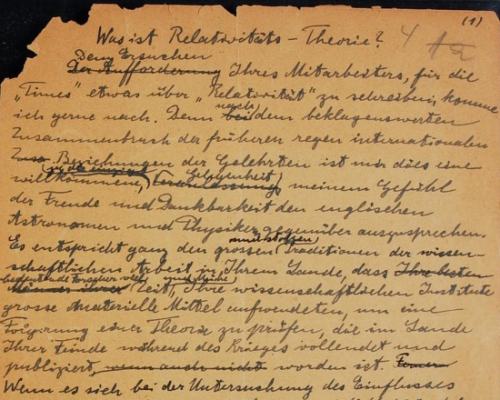 (1)
Was ist Relativitäts-Theorie?
Dem Ersuchen
Der Aufforderung Ihres Mitarbeiters, für die
„Times" etwas über „Relativität" zu schreiben, komme
nach
ich gerne nach. Denn bei dem beklagenswerten
Zusammenbruch der früheren regen internationalen
Beziehungen der Gelehrten ist mir dies eine
Gelegenheit
willkommene Veranlassung, meinem Gefühl
der Freude und Dankbarkeit den englischen
Astronomen und Physikern gegenüber auszusprechen.
und stolzen
Es entspricht ganz den grossen Traditionen der wissen-
schaftlichen Arbeit in Ihrem Lande, dass Ihre besten
bedeutende Forscher viel und Mühe
Zeit, Ihre wissenschaftlichen Institute
grosse materielle Mittel aufwendeten, um eine
Folgerung einer Theorie zu prüfen, die im Lande
Ihrer Feinde während des Krieges vollendet und
publiziert, wenn auch nicht worden ist. Ferner
Wenn es sich bei der Untersuchung des Einflusses